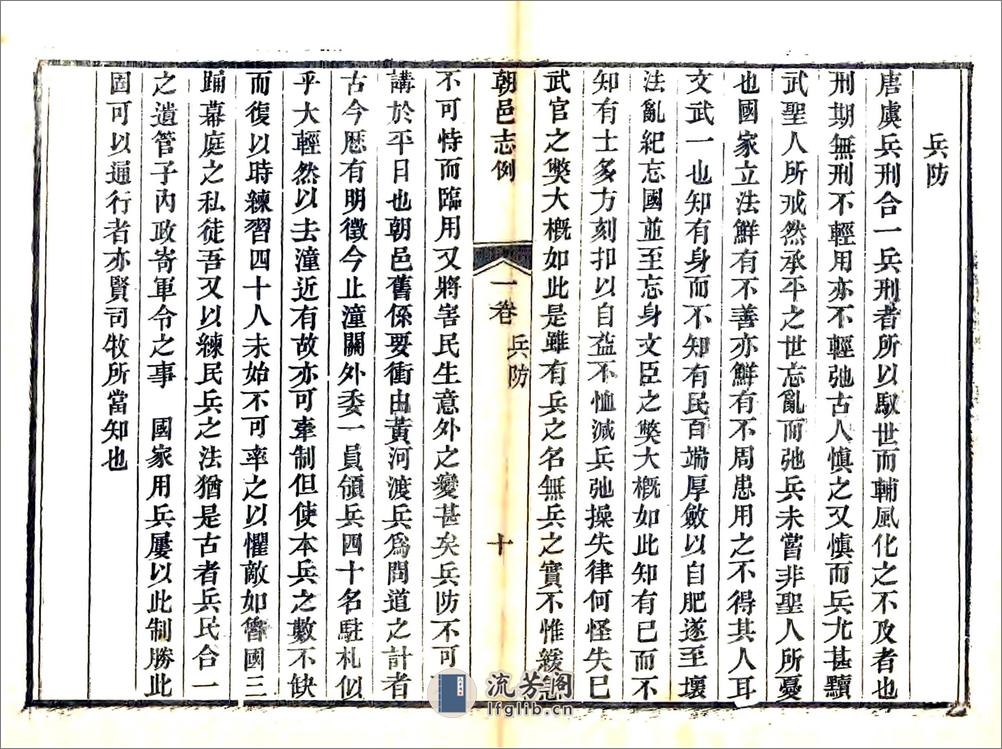 兵防
唐虞兵刑合一兵刑者所以馭世而輔風化之不及者也
刑期無刑不輕用亦不輕弛古人慎之又慎而兵尤甚黷
武聖人所戒然承平之世忘亂而弛兵未嘗非聖人所憂
也國家立法鮮有不善亦鮮有不周患用之不得其人耳
文武一也知有身而不知有民百端厚斂以自肥遂至壞
法亂紀忘國並至忘身文臣之獘大概如此知有已而不
知有士多方刻扣以自益不恤減兵弛操失律何怪失巳
武官之獘大概如此是雖有兵之名無兵之實不惟緩急
朝邑志例
一卷
兵防
十
不可恃而臨用又將害民生意外之變甚矣兵防不可
講於平日也朝邑舊係要衝由黃河渡兵爲問道之計者
古今歷有明徵今止潼關外委一員領兵四十名駐札似
乎大輕然以去潼近有故亦可牽制但使本兵之數不缺
而復以時練習四十人未始不可率之以懼敵如魯國三
踊幕庭之私徒吾又以練民兵之法猶是古者兵民合一
之遺管子內政寄軍令之事 國家用兵屢以此制勝此
固可以通行者亦賢司牧所當知也
流芳閣
lfglib.cn